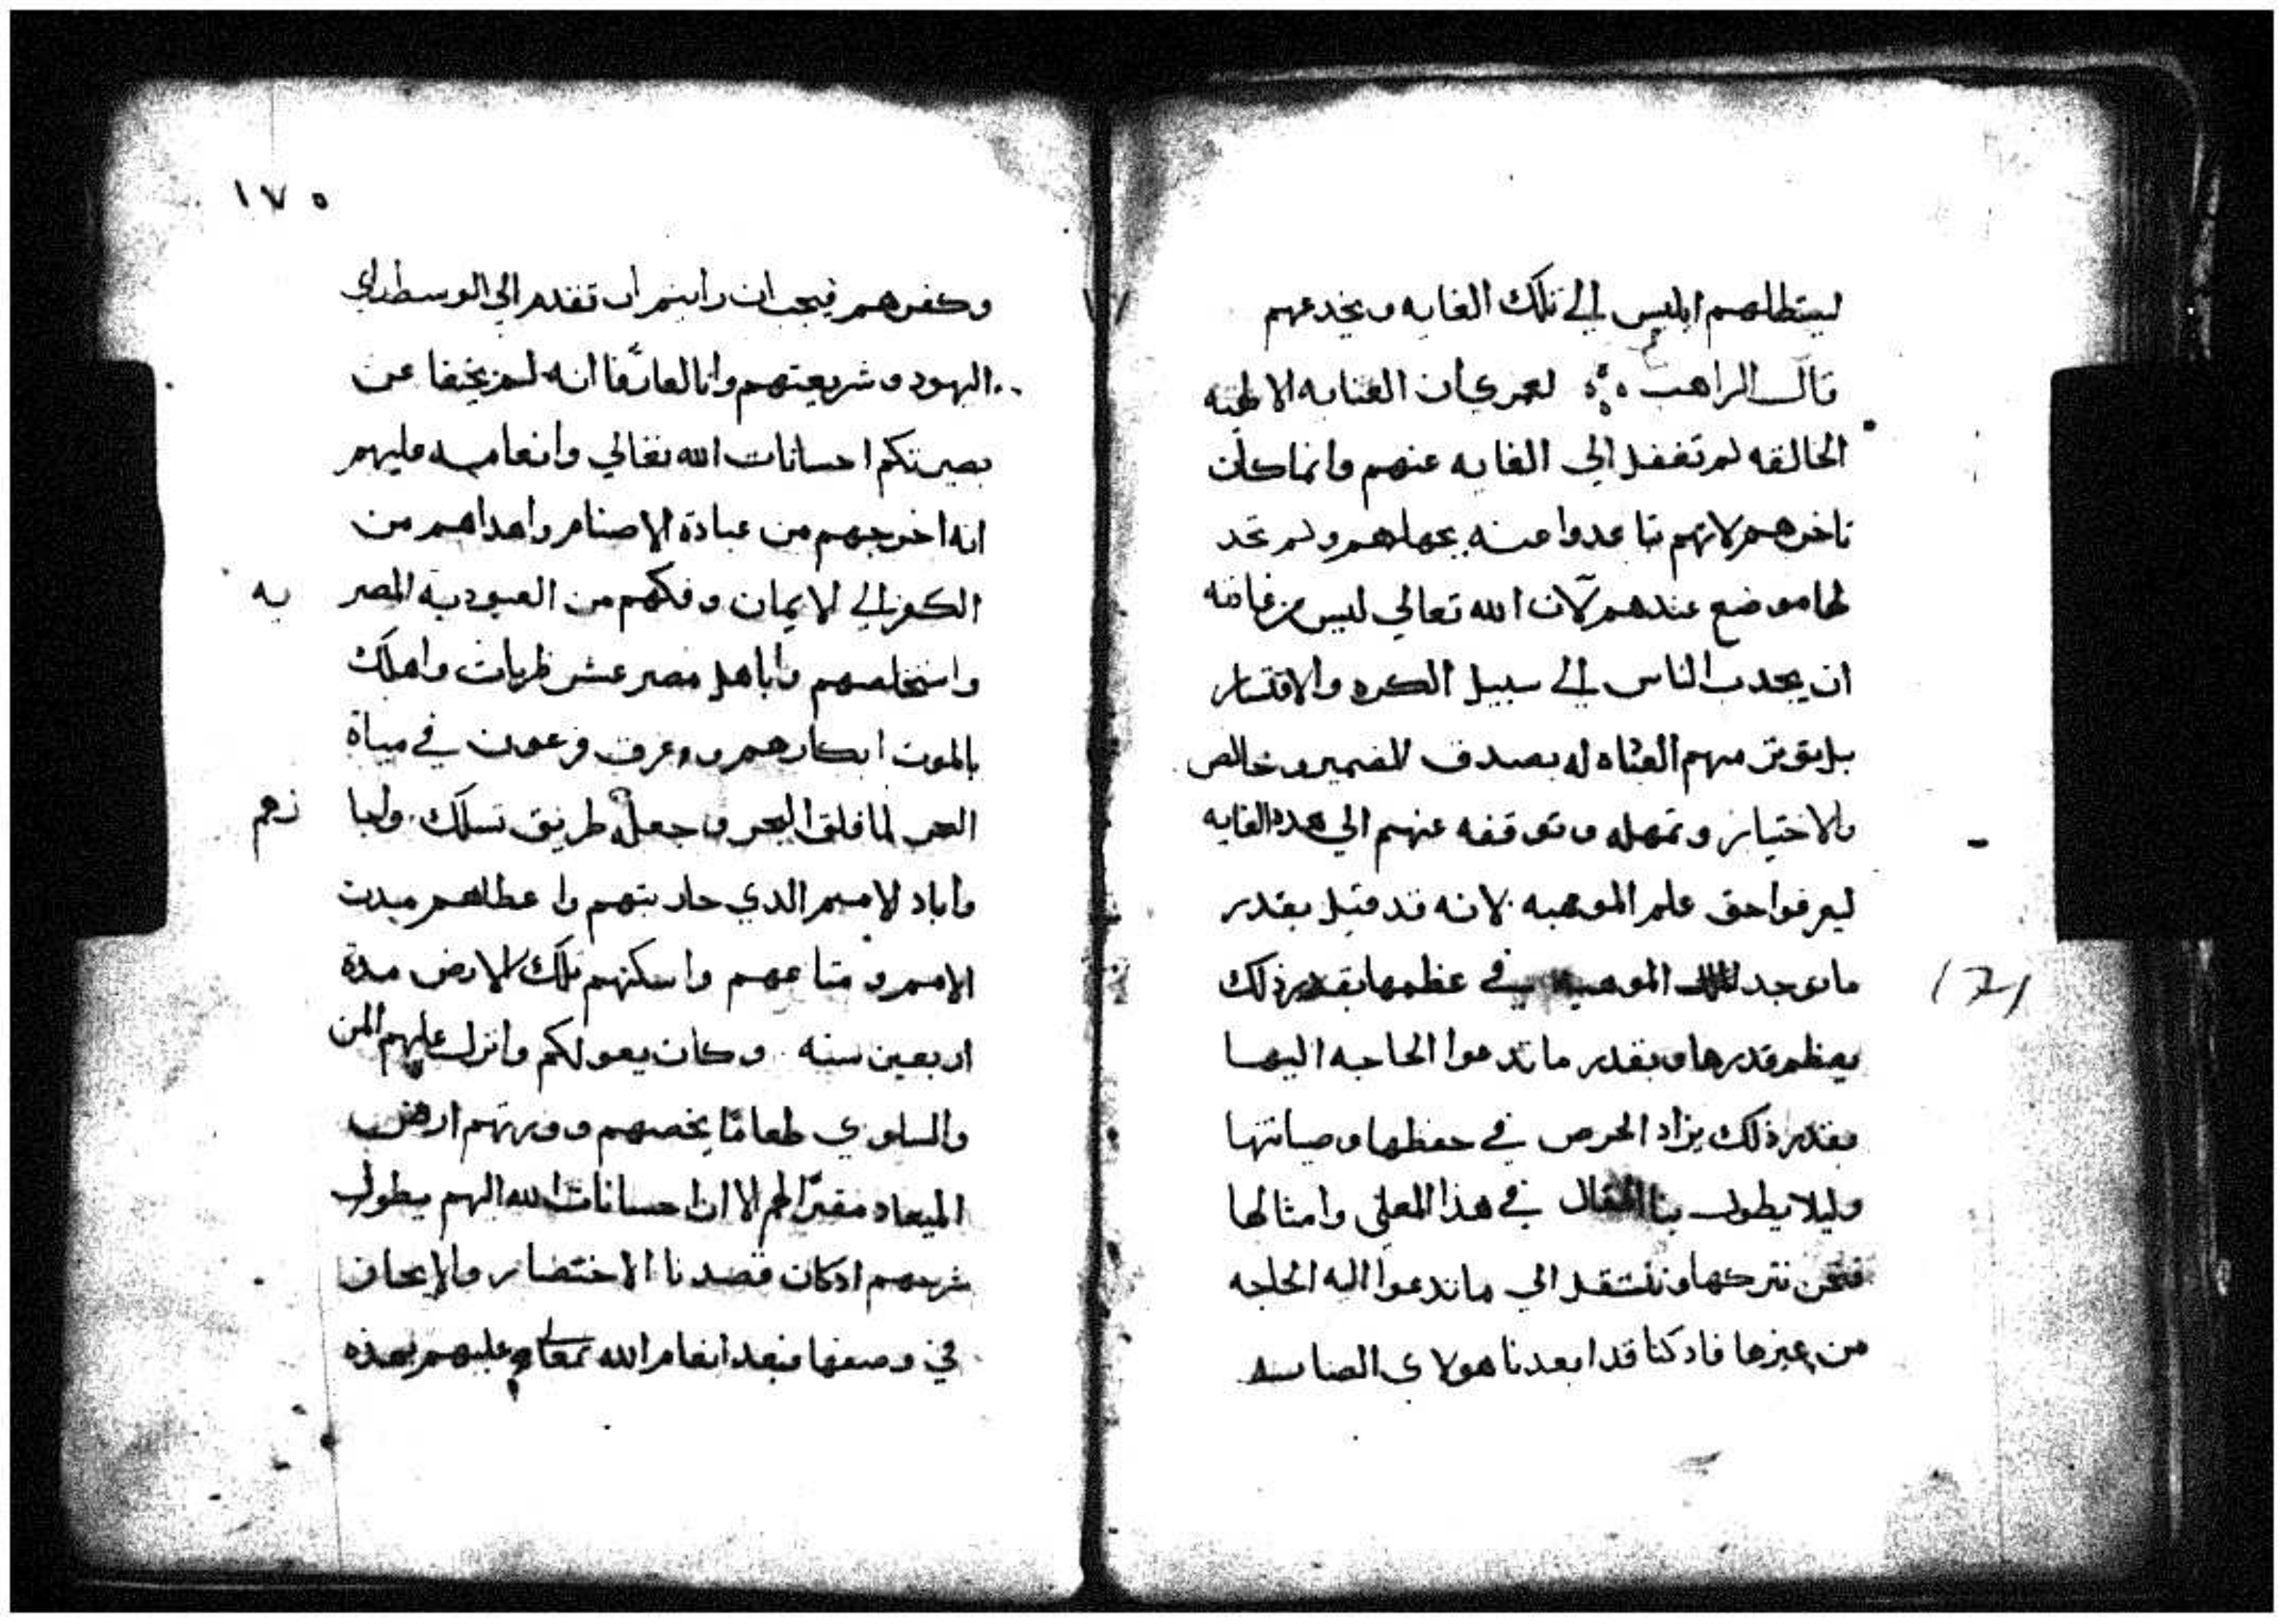 ليستطلهم ابليس الي تلك الغايه ويخدعهم
قال الراهب لعمري ان العنايه الالهيه
الخالقه لم تغفل الي الغايه عنهم وانما كان
تاخرهم لانهم تباعدوا منه بجهلهم ولم تجد
لها موضع عندهم لان الله تعالي ليس من عادته
ان يجدب الناس الي سبيل الكره والاقتسار
بل يوتر منهم له بصدق الضمير وخالص
الاختيار وتمهله وتوقفه عنهم الي هده الغايه
ليعرفوا حق علم الموهبه لانه قد قيل بقدر
ما توجد الموهبه في عظمها بقدر ذلك
يعظم قدرها وبقدر ما تدعوا الحاجه اليها
بقدر ذلك يزاد الحرص في حفظها وصيانتها
وليلا يطول بنا المقال في هذا المعني وامثالها
فنحن نتركها وننتقل الي ما تدعوا اليه الحاجه
من غيرها فاد كنا قد ابعدنا هولاي الصابيه
١٧٥
وكفرهم فيجب ان رايتم ان تقدم الي الوسط راي
اليهود وشريعتهم وانا لعارفا انه لم يخفا عن
بصيرتكم احسانات الله تعالي وانعامه عليهم
انه اخرجهم من عبادة الاصنام واهداهم من
الكفر الي الايمان وفكهم من العبوديه المصر يه
واستخلصهم واباهل مصر عشر ضربات واهلك
بالموت ابكارهم وغرق فرعون في مياة
البحر لما فلق البحر وجعله طريق تسلك ولجا زهم
واباد الامم الدي حاربتهم واعطاهم ميرت
الامم ومتاعهم واسكنهم تلك الارض مدة
اربعين سنه وكان يعولكم وانزل عليهم المن
والسلوي طعامًا يخصهم وورتهم ارض
الميعاد لهم الا ان احسانات الله اليهم يطول
شرحهم ادكان قصدنا الاختصار والايجاز
في وصفها فبعد انعام الله تعالي عليهم بهذه